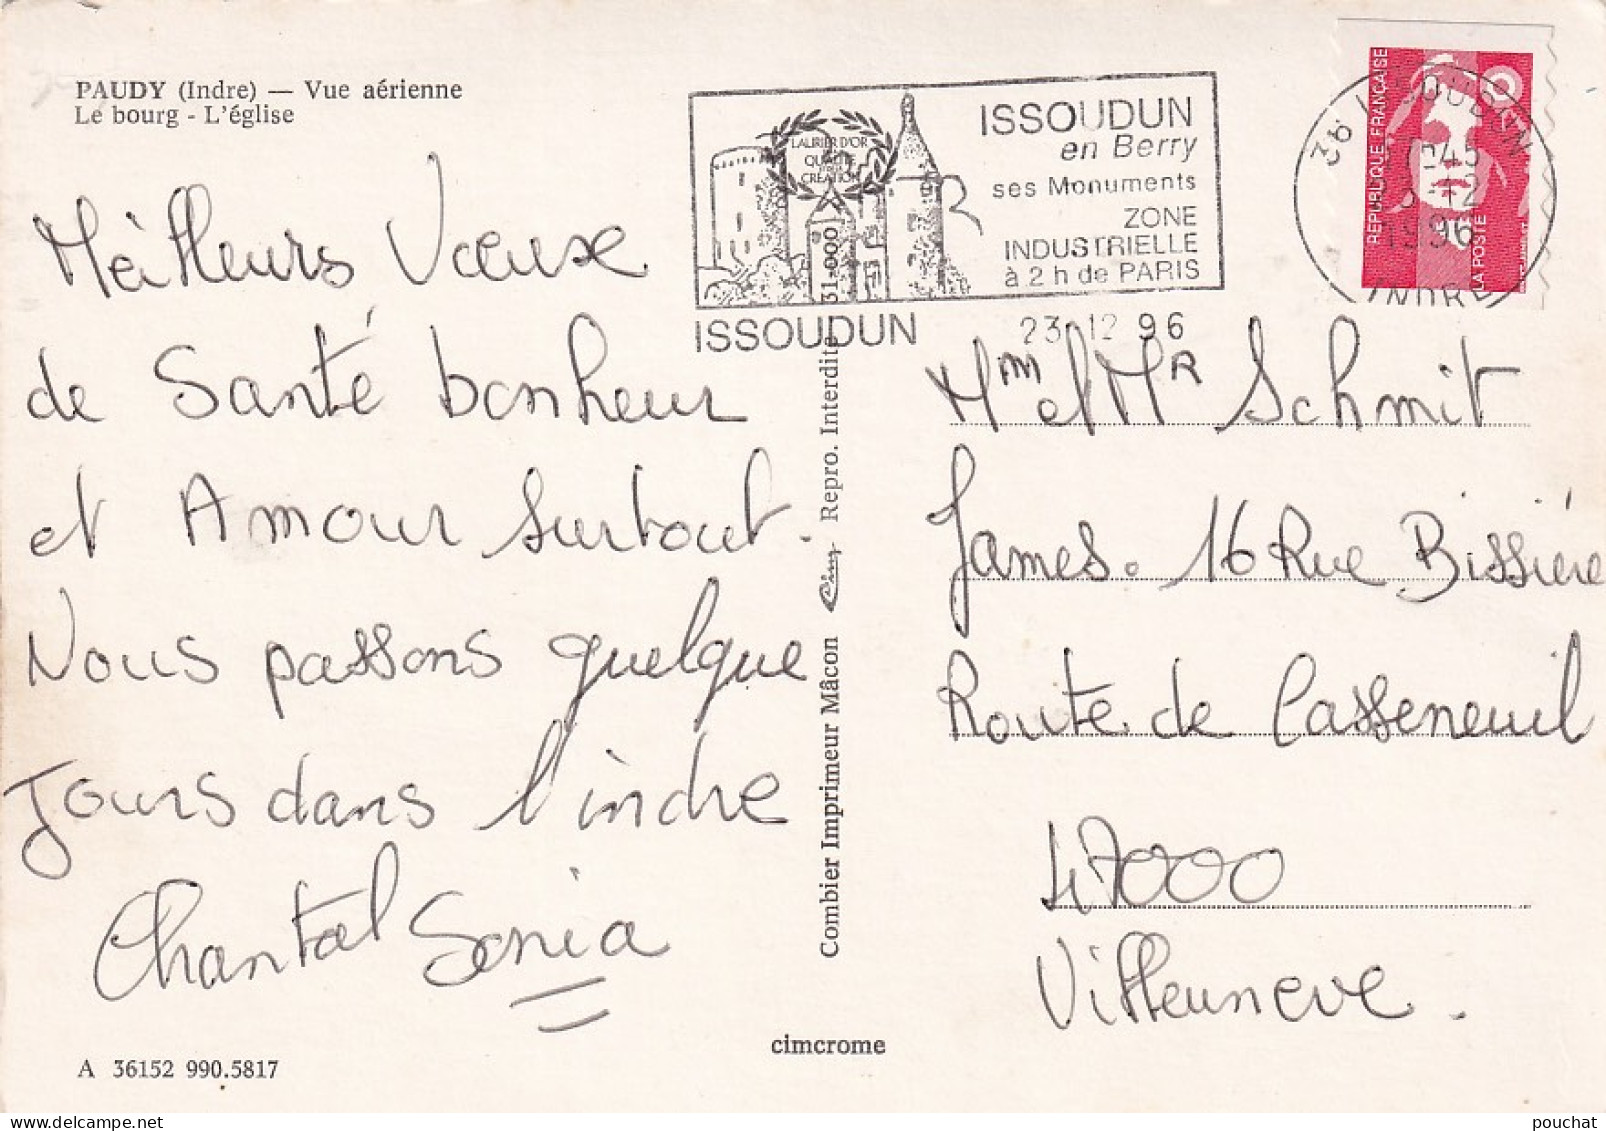 PAUDY (Indre) — Vue aérienne
Le bourg - L'église
LAURIER D'OR
QUALITÉ
CRÉATION
ISSOUDUN
en Berry
ses Monuments
ZONE
INDUSTRIELLE
à 2 h de PARIS
ISSOUDUN
23.12 96
36 ISSOUDUN
1996
INDRE
REPUBLIQUE FRANÇAISE
LA POSTE
Meilleurs Voeuxe
de Santé bonheur
et Amour surtout.
Nous passons quelque
Jours dans l'indre
Chantal Sonia
Mm et Mr Schmit
James. 16 Rue Bissière
Route de Casseneuil
47000
Villeuneve.
Combier Imprimeur Mâcon Cim Repro. Interdite 31-000
cimcrome
A 36152 990.5817
pouchat